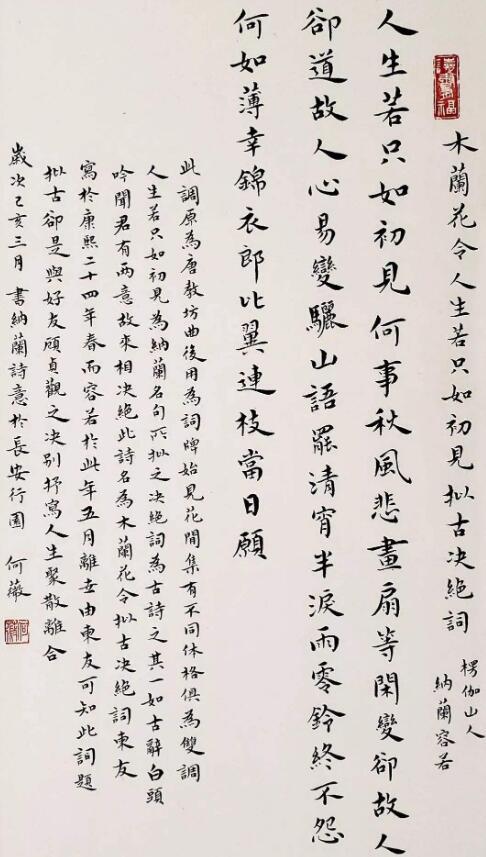 木蘭花令人生若只如初見擬古决絶詞
楞伽山人
納蘭容若
人生若只如初見何事秋風悲畫扇等閑變卻故人
卻道故人心易變驪山語罷清宵半淚雨零鈴終不怨
何如薄幸錦衣郎比翼連枝當日願
此調原為唐教坊曲後用為詞牌始見花間集有不同体格俱為雙調
人生若只如初見為納蘭名句所擬之决絶詞為古詩之其一如古辭白頭
吟聞君有兩意故來相决絶此詩名為木蘭花令擬古决絶詞柬友
寫於康熙二十四年春而容若於此年五月離世由柬友可知此詞題
擬古卻是與好友顧貞觀之决别抒寫人生聚散離合
歲次乙亥三月書納蘭詩意於長安行園 何薇